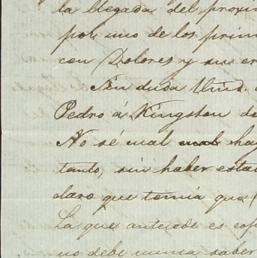 la llegada del proxi
por uno de los prim
con Dolores y su er
Sin duda Umd.
Pedro á Kingston de
No sé cual mal hay
tanto, sin haber esta
claro que tenia que
La que antecede es cop
no debe nunca saber